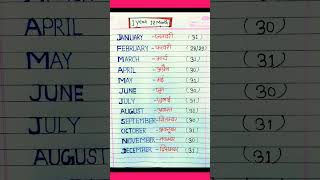 1 Year 12 Month
JANUARY - जनवरी (31)
FEBRUARY - फरवरी (28/29)
MARCH - मार्च (31)
APRIL - अप्रैल (30)
MAY - मई (31)
JUNE - जून (30)
JULY - जुलाई (31)
AUGUST - अगस्त (31)
SEPTEMBER - सितम्बर (30)
OCTOBER - अक्टूबर (31)
NOVEMBER - नवम्बर (30)
DECEMBER - दिसम्बर (31)